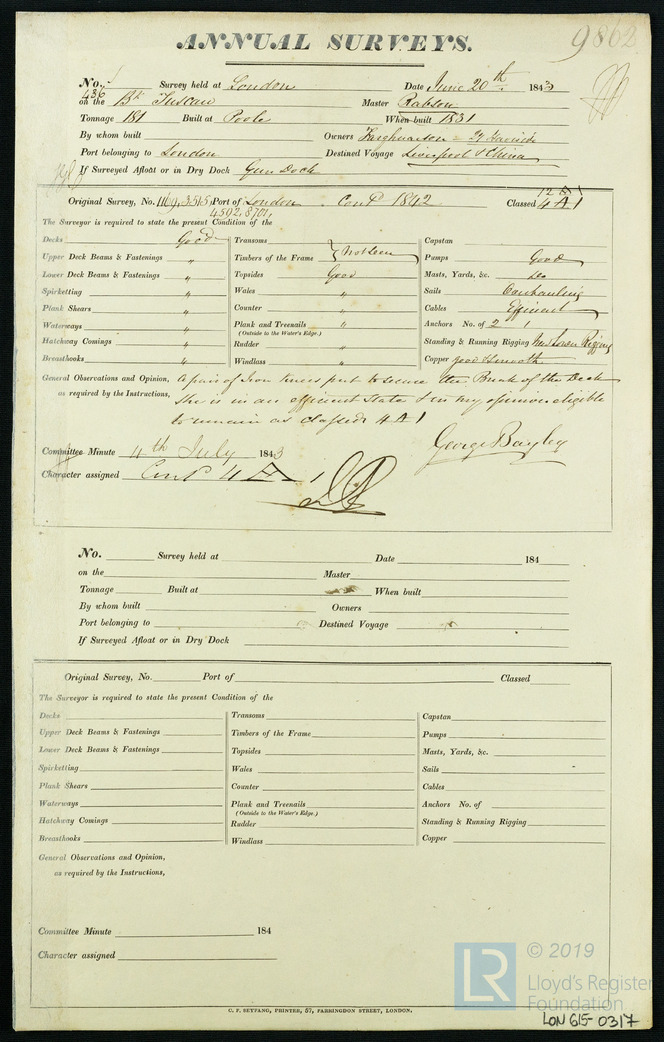 ANNUAL SURVEYS.
9862
No. 436 Survey held at London Date June 20th 1843
on the Bk Tuscan Master Rabson
Tonnage 181 Built at Poole When built 1831
By whom built Owners
Port belonging to London Destined Voyage Liverpool & China
If Surveyed Afloat or in Dry Dock Gun Dock
Original Survey, No. Port of London Contd 1842 Classed 4 A 1
4592, 8701,
The Surveyor is required to state the present Condition of the
Decks Good Transoms } Not seen Capstan
Upper Deck Beams & Fastenings " Timbers of the Frame Pumps Good
Lower Deck Beams & Fastenings " Topsides Good Masts, Yards, &c. Do
Spirketting " Wales " Sails
Plank Shears " Counter " Cables Efficient
Waterways " Plank and Treenails " Anchors No. of 2
(Outside to the Water's Edge.)
Hatchway Comings " Rudder " Standing & Running Rigging
Breasthooks " Windlass " Copper good & smooth
General Observations and Opinion, A pair of Iron knees put to secure the Break of the Deck
as required by the Instructions, She is in an efficient state & in my opinion eligible
to remain as classed 4 A 1
George Bayley
Committee Minute 4th July 1843
Character assigned Contd 4 A 1
No. Survey held at Date 184
on the Master
Tonnage Built at When built
By whom built Owners
Port belonging to Destined Voyage
If Surveyed Afloat or in Dry Dock
Original Survey, No. Port of Classed
The Surveyor is required to state the present Condition of the
Decks Transoms Capstan
Upper Deck Beams & Fastenings Timbers of the Frame Pumps
Lower Deck Beams & Fastenings Topsides Masts, Yards, &c.
Spirketting Wales Sails
Plank Shears Counter Cables
Waterways Plank and Treenails Anchors No. of
(Outside to the Water's Edge.)
Hatchway Comings Rudder Standing & Running Rigging
Breasthooks Windlass Copper
General Observations and Opinion,
as required by the Instructions,
Committee Minute 184
Character assigned
C. F. SEYFANG, PRINTER, 57, FARRINGDON STREET, LONDON.
LR © 2019
Lloyd's Register
Foundation
LON 615-0317